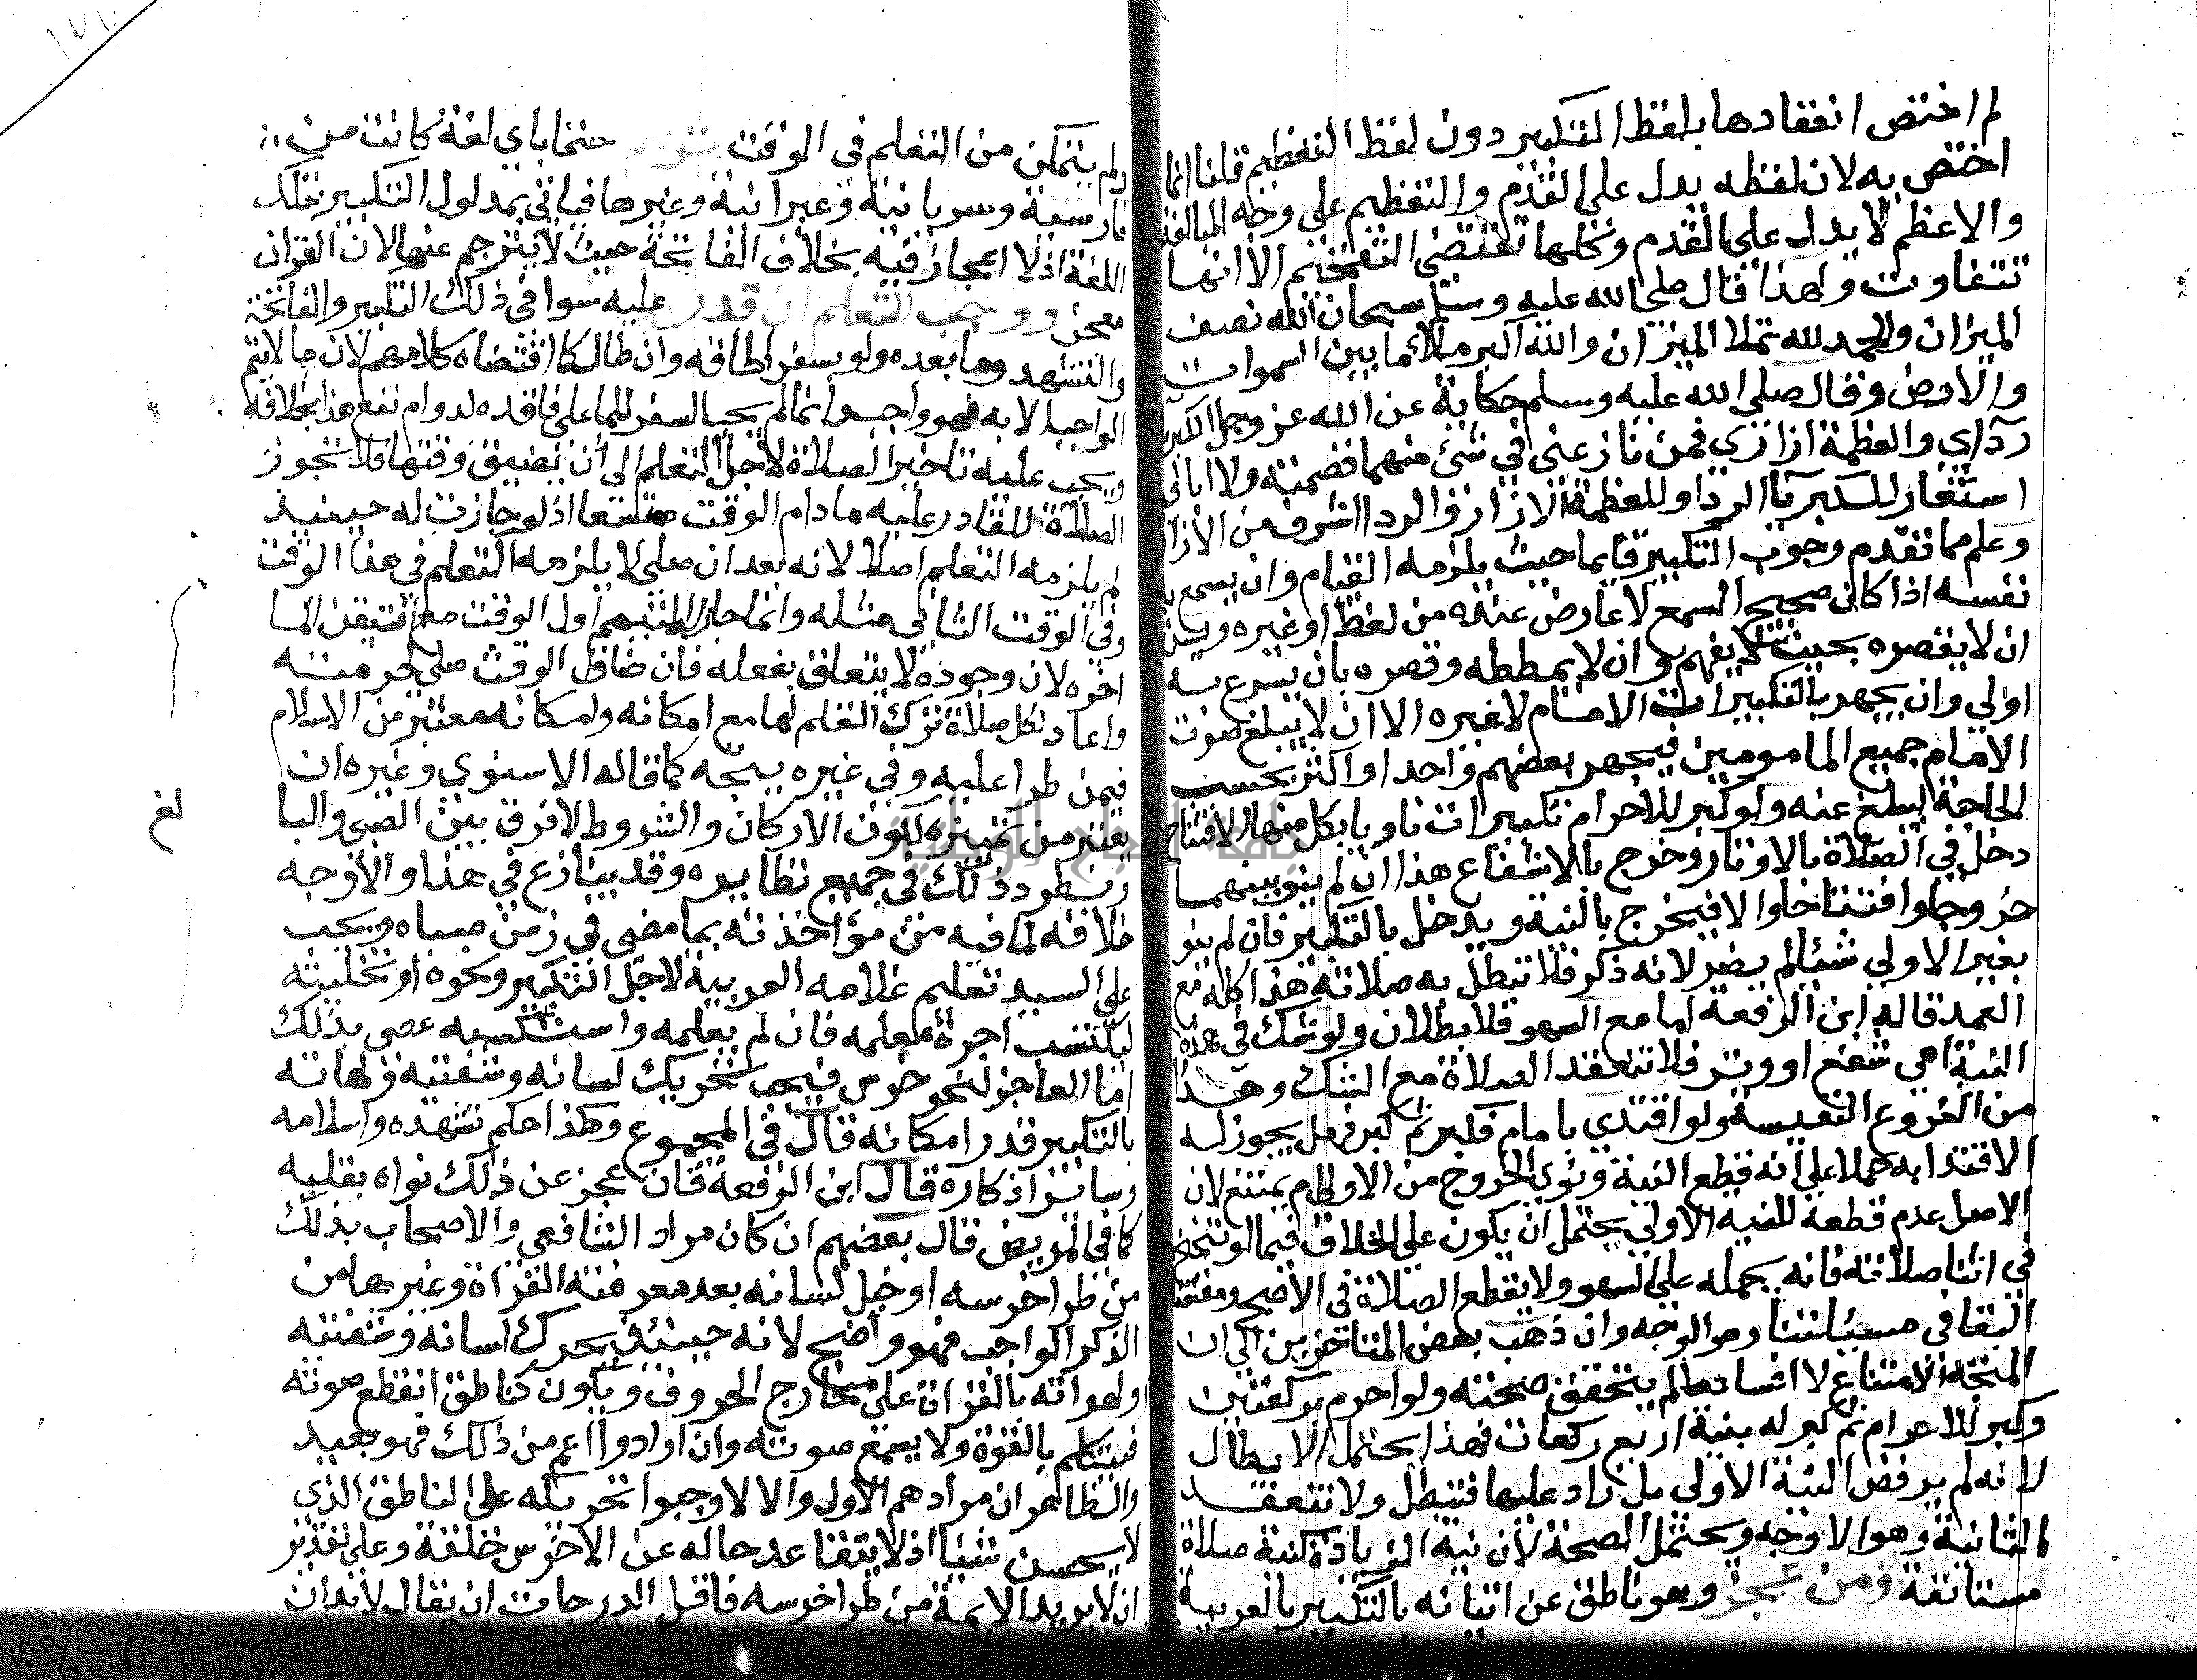 لم اختص انعقادها بلفظ التكبير دون لفظ التعظيم قلنا انما
اختص به لان لفظه يدل على القدم والتعظيم على وجه المبالغة
والاعظم لا يدل على القدم وكلها تقتضي التفخيم الا انها
تتفاوت ولهذا قال صلى الله عليه وسلم سبحان الله نصف
الميزان والحمد لله تملا الميزان والله اكبر ملا ما بين السموات
والارض وقال صلى الله عليه وسلم حكاية عن الله عز وجل الكبريا
رداي والعظمة ازاري فمن نازعني في شئ منهما قصمته ولا ابالي
استعار للكبريا الردا وللعظمة الازار والردا اشرف من الازار
وعلم مما تقدم وجوب التكبير قايما حيث يلزمه القيام وان يسمع به
نفسه اذا كان صحيح السمع لا عارض عنده من لغط او غيره ويسن
ان لا يقصره بحيث لا يفهم وان لا يمططه وقصره بان يسرع به
اولي وان يجهر بالتكبيرات الامام لا غيره الا ان لا يبلغ صوت
الامام جميع المامومين فيجهر بعضهم واحدا او اكثر بحسب
الحاجة ليبلغ عنه ولو كبر للاحرام تكبيرات ناويا بكل منها الافتتاح
دخل في الصلاة بالاوتار وخرج بالاشفاع هذا ان لم ينو بينهما
خروجا وافتتاحا والا فيخرج بالنية ويدخل بالتكبير فان لم ينو
بغير الاولي شيئا لم يضر لانه ذكر فلا تبطل به صلاته هذا كله مع
العمد قاله ابن الرفعة اما مع السهو فلا بطلان ولو شك في هذه
النية اهي شفع او وتر فلا تنعقد الصلاة مع الشك وهذا
من الفروع النفيسة ولو اقتدي بامام فكبر ثم كبر فهل يجوز له
الاقتدا به حملا على انه قطع النية ونوي الخروج من الاولى ام يمتنع لان
الاصل عدم قطعه للنية الاولي يحتمل ان يكون على الخلاف فيما لو تنحنح
في اثنا صلاته فانه يحمله على السهو ولا يقطع الصلاة في الاصح ومقتضاه
البقا في مسئلتنا وهو الاوجه وان ذهب بعض المتاخرين الي ان
المتجه الامتناع لا افساد ما لم يتحقق صحته ولو احرم بركعتين
وكبر للاحرام ثم كبر له بنية اربع ركعات فهذا يحتمل الابطال
لانه لم يرفض النية الاولى بل زاد عليها فتبطل ولا تنعقد
الثانية وهو الاوجه ويحتمل الصحة لان نية الزيادة كنية صلاة
مستانفة ومن عجز وهو ناطق عن اتيانه بالتكبير بالعربية
ولم يتمكن من التعلم في الوقت حتما باي لغة كانت من
فارسية وسريانية وعبرانية وغيرها فياتي بمدلول التكبير بتلك
اللغة اذ لا اعجاز فيه بخلاف الفاتحة حيث لا يترجم عنها لان القران
معجز ووجب التعلم ان قدر عليه سوا في ذلك التكبير والفاتحة
والتشهد وما بعده ولو بسفر اطاقه وان طال كما اقتضاه كلامهم لان ما لا يتم
الواجب الا به فهو واجب وانما لم يجب السفر للما على فاقده لدوام نفع هذا بخلافه
ويجب عليه تاخير الصلاة لاجل التعلم الى ان يضيق وقتها فلا تجوز
الصلاة للقادر عليه ما دام الوقت متسعا اذ لو جازت له حينيذ
لم يلزمه التعلم اصلا لانه بعد ان صلى لا يلزمه التعلم في هذا الوقت
وفي الوقت الثاني مثله وانما جاز التيمم اول الوقت مع تيقن الما
اخره لان وجوده لا يتعلق بفعله فان ضاق الوقت صلى لحرمته
واعاد لكل صلاة ترك التعلم لها مع امكانه وامكانه معتبر من الاسلام
فيمن طرا عليه وفي غيره يتجه كما قاله الاسنوي وغيره ان
يعتبر من تمييزه لكون الاركان والشروط لا فرق بين الصبي والبا
ويطرد ذلك في جميع نظايره وقد ينازع في هذا والاوجه
خلافه لما فيه من مؤاخذته بما مضي في زمن صباه ويجب
على السيد تعليم غلامه العربية لاجل التكبير ونحوه او تخليته
ليكتسب اجرة معلمه فان لم يعلمه واستكسبه عصى بذلك
اما العاجز لنحو خرس فيجب تحريك لسانه وشفتيه ولهاته
بالتكبير قدر امكانه قال في المجموع وهكذا حكم تشهده واسلامه
وسائر اذكاره قال ابن الرفعة فان عجز عن ذلك نواه بقلبه
كما في المريض قال بعضهم ان كان مراد الشافعي والاصحاب بذلك
من طرا خرسه او خبل لسانه بعد معرفته القراة وغيرها من
الذكر الواجب فهو واضح لانه حينئذ يحرك لسانه وشفتيه
ولهواته بالقراة على مخارج الحروف ويكون كناطق انقطع صوته
فيتكلم بالقوة ولا يسمع صوته وان ارادوا اعم من ذلك فهو بعيد
والظاهر ان مرادهم الاول والا لاوجبوا تحريكه على الناطق الذي
لا يحسن شيئا اذ لا يتقاعد حاله عن الاخرس خلقة وعلى تقدير
ان لا يريد الايمة من طرا خرسه فاقل الدرجات ان يقال لا بد ان
لغ